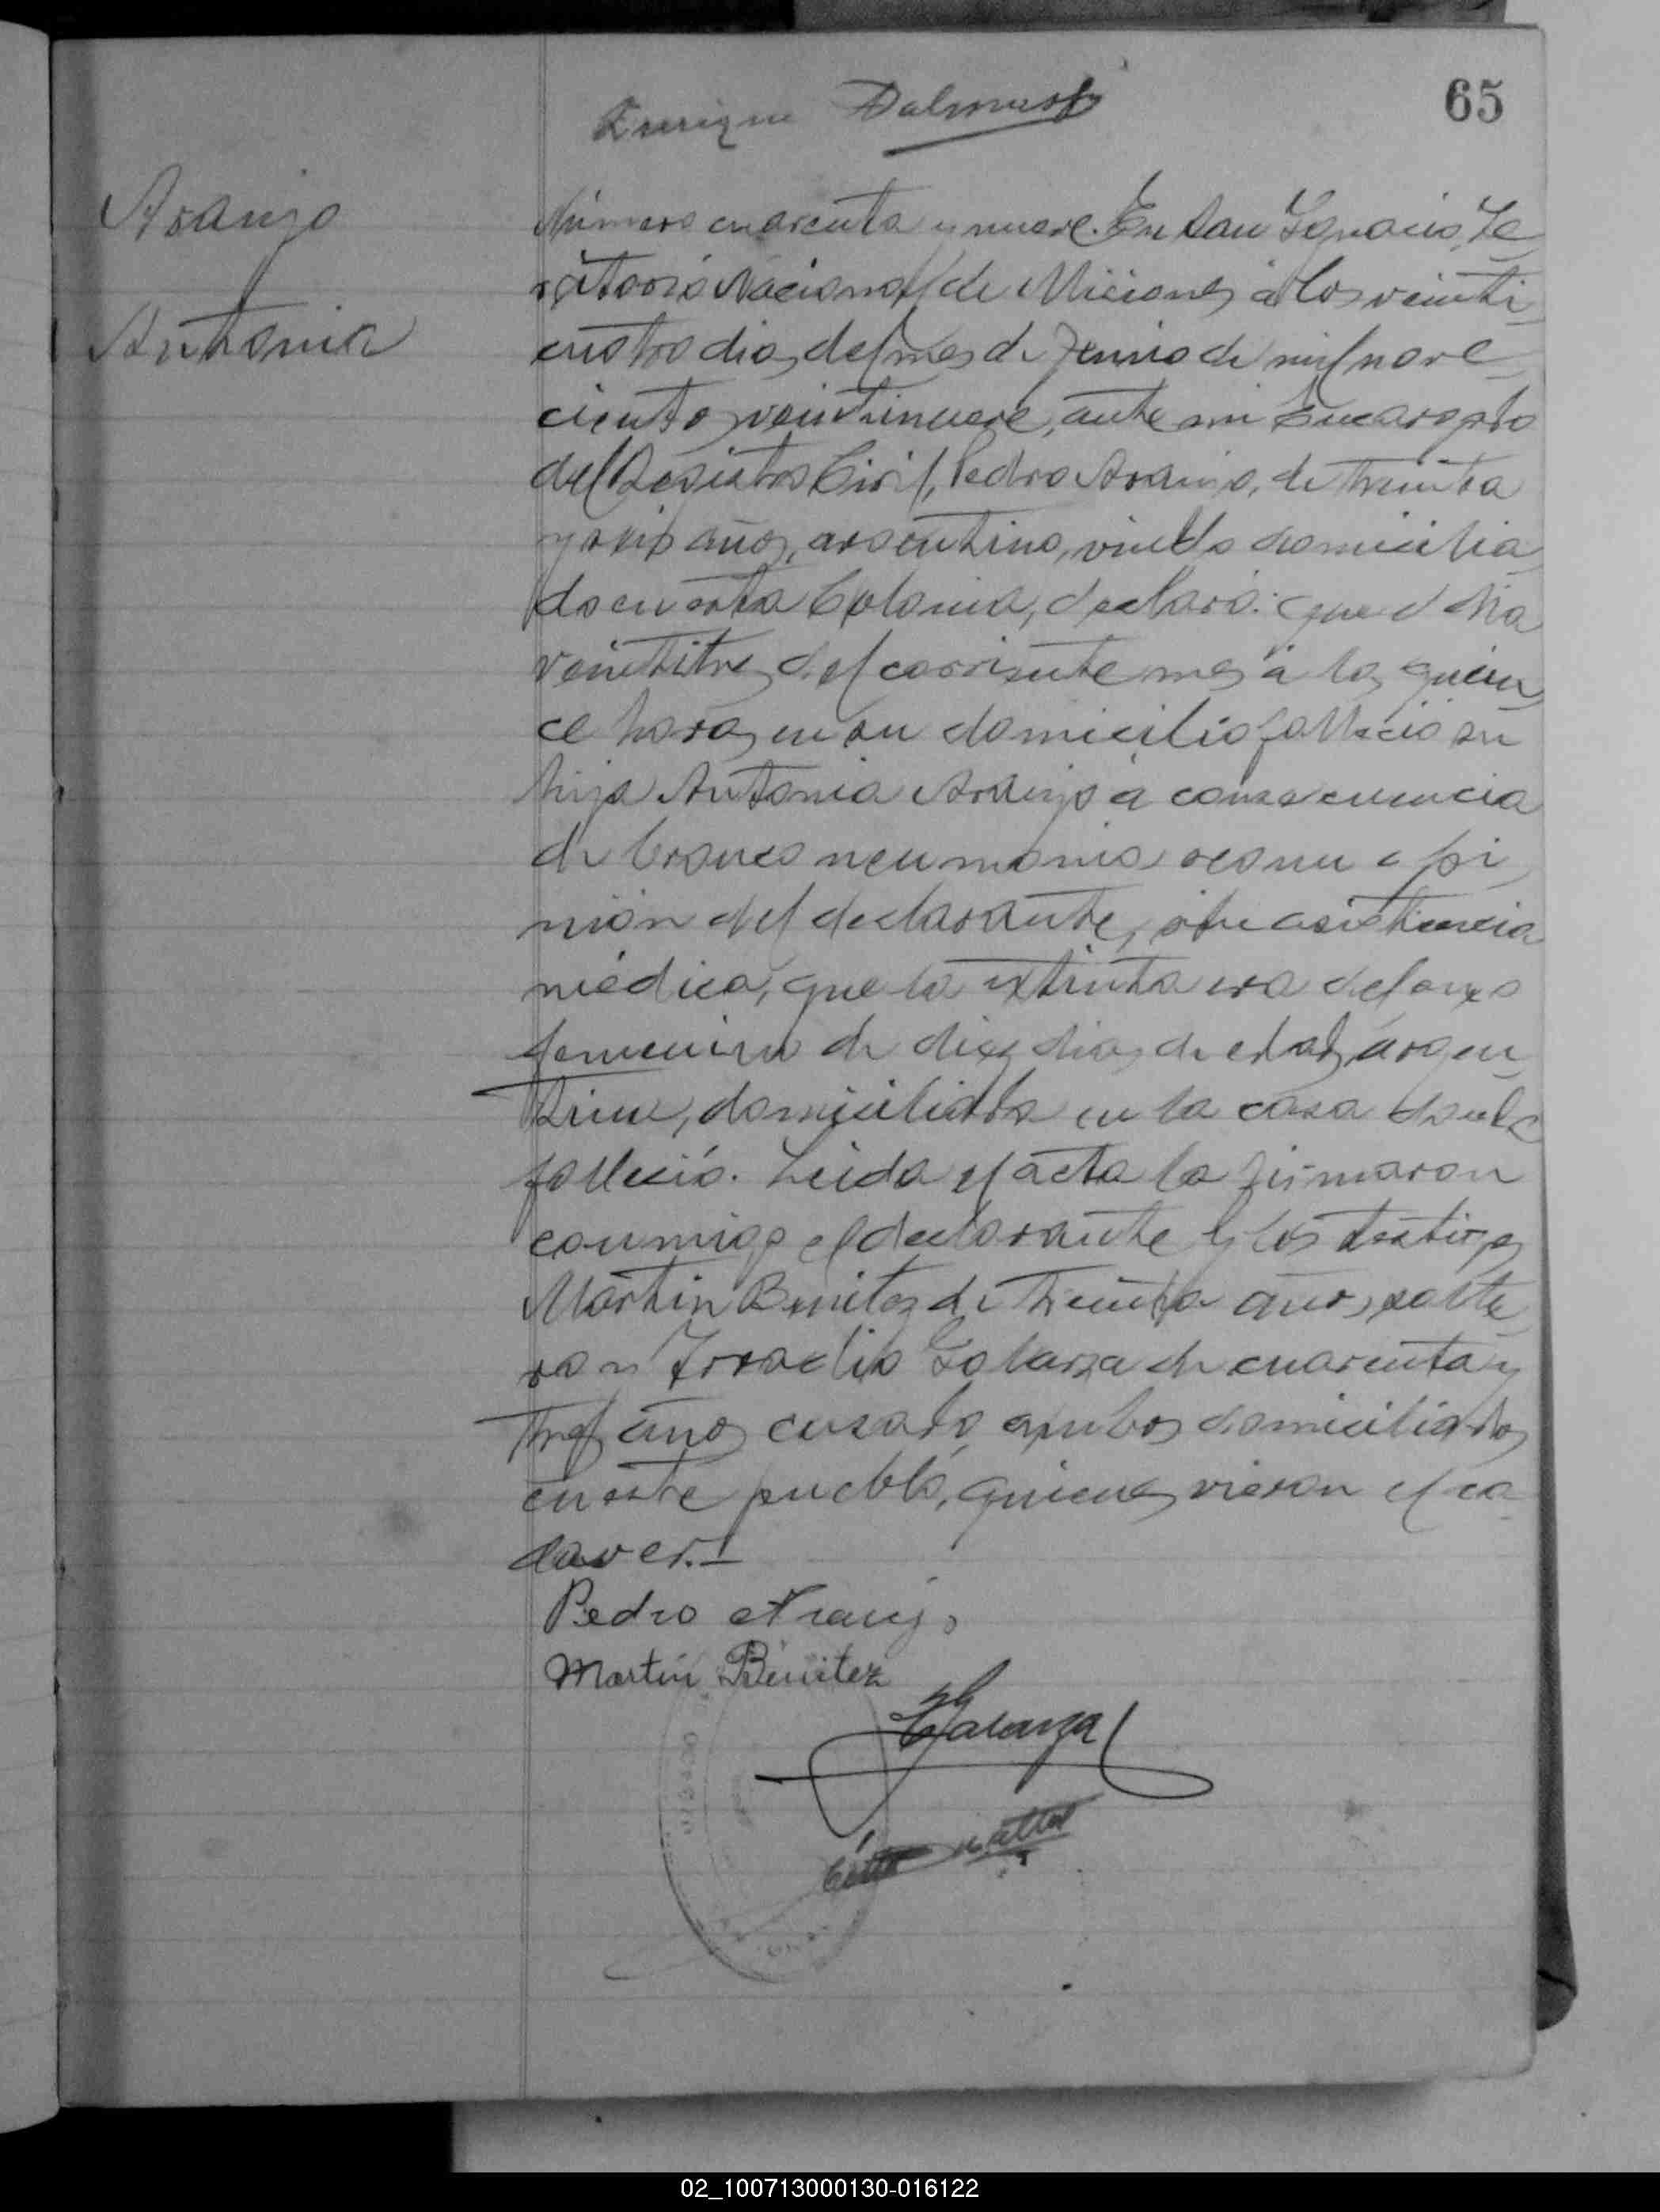 65
Enrique
Araujo
Antonia
Número cuarenta y nueve. En San Ignacio, Te
ritorio Nacional de Misiones a los veinti
cuatro dias del mes de Junio de mil nove
cientos veintinueve, ante mi Encargado
del Registro Civil, Pedro Araujo, de treinta
y seis años, argentino, viudo domicilia
do en esta Colonia, declaró: que el dia
veintitres del corriente mes á las quin
ce horas en su domicilio falleció su
hija Antonia Araujo á consecuencia
de bronco neumonia segun opi
nión del declarante, sin asistencia
médica, que la extinta era del sexo
femenino de diez dias de edad, argen
tina, domiciliada en la casa donde
falleció. Leida el acta la firmaron
conmigo el declarante y los testigos
Martin Benitez de treinta años, solte
ro y Galarza de cuarenta y
tres años casado, ambos domiciliados
en este pueblo, quienes vieron el ca
daver.—
Pedro Araujo
Martín Benitez
Galarza
02_100713000130-016122